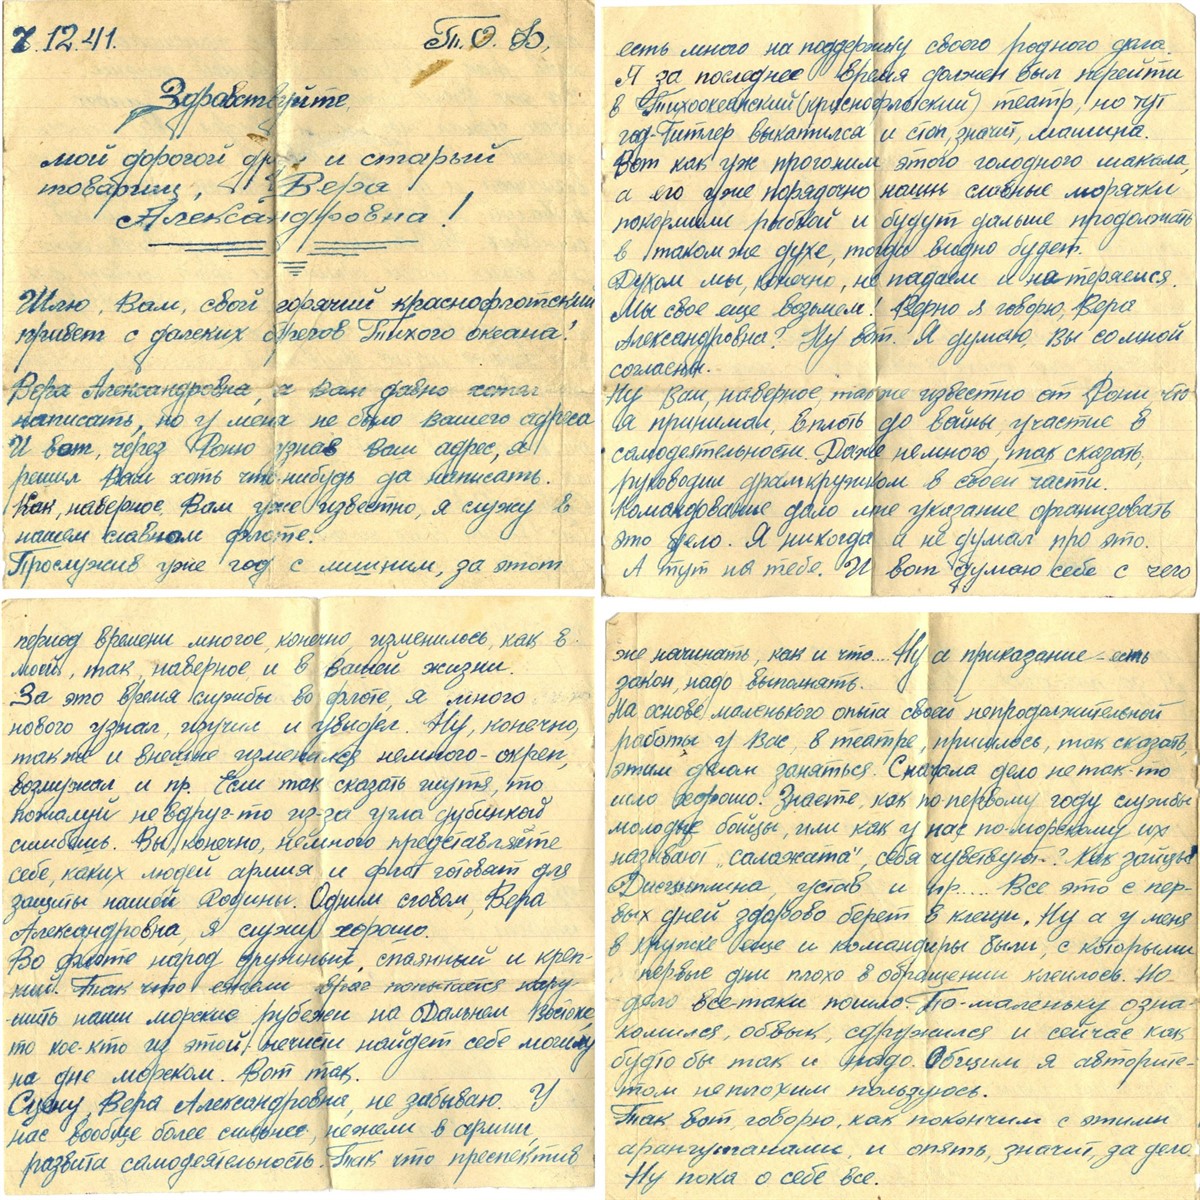 7.12.41.
Т.О.Ф.
Здравствуйте,
мой дорогой друг и старый
товарищ, Вера
Александровна!
Шлю, Вам, свой горячий краснофлотский
привет с далеких брегов Тихого океана!
Вера Александровна, я Вам давно хотел
написать, но у меня не было вашего адреса
И вот, через Фаню узнав Ваш адрес, я
решил Вам хоть что нибудь да написать.
Как, наверное, Вам уже известно, я служу в
нашем славном флоте.
Прослужив уже год с лишним, за этот
период времени многое, конечно, изменилось, как в
моей, так, наверное, и в вашей жизни.
За это время службы во флоте, я много
нового узнал, изучил и увидел. Ну, конечно,
также и внешне изменился немного-окреп,
возмужал и пр. Если так сказать шутя, то
пожалуй не вдруг-то из-за угла дубинкой
сшибешь. Вы конечно, немного представляете
себе, каких людей армия и флот готовят для
защиты нашей Родины. Одним словом, Вера
Александровна, я служу хорошо.
Во флоте народ дружный, спаянный и креп-
кий. Так что ежели враг попытается нару-
шить наши морские рубежи на Дальнем Востоке,
то кое-кто из этой нечисти найдет себе могилу
на дне морском. Вот так.
Сцену, Вера Александровна, не забываю. У
нас вообще более сильнее, нежели в армии,
развита самодеятельность. Так что преспектив
есть много на поддержку своего родного дела.
Я за последнее время должен был перейти
в Тихоокеанский (краснофлотский) театр, но тут
гад-Гитлер выкатился и стоп, значит, машина.
Вот как уж прогоним этого голодного шакала,
а его уже порядочно наши славные морячки
покормили рыбкой и будут дальше продолжать
в таком же духе, тогда видно будет.
Духом мы, конечно, не падаем и не теряемся.
Мы свое еще возьмем! Верно я говорю, Вера
Александровна? Ну вот. Я думаю, Вы со мной
согласны.
Ну Вам, наверное, также известно от Фани что
я принимал, вплоть до войны, участие в
самодеятельности. Даже немного, так сказать,
руководил драмкружком в своей части.
Командование дало мне указание организовать
это дело. Я никогда и не думал про это.
А тут на тебе. И вот думаю себе с чего
же начинать, как и что.... Ну а приказание-есть
закон, надо выполнять.
На основе, маленького опыта своей непродолжительной
работы у Вас, в театре, пришлось, так сказать,
этим делом заняться. Сначала дело не так-то
шло хорошо. Знаете, как по первому году службы
молодые бойцы, или как у нас по-морскому их
называют "салажата", себя чувствуют-? Как зайцы.
Дисциплина, устав и пр.... Все это с пер-
вых дней здорово берет в клещи. Ну а у меня
в кружке еще и командиры были, с которыми
первые дни плохо в обращении клеилось. Но
дело всетаки пошло. По-маленьку озна-
комился, обвык, сдружился и сейчас как
будто бы так и надо. Общим я авторите-
том неплохим пользуюсь.
Так вот, говорю, как покончим с этими
арангутанами, и опять, значит, за дело.
Ну пока о себе все.